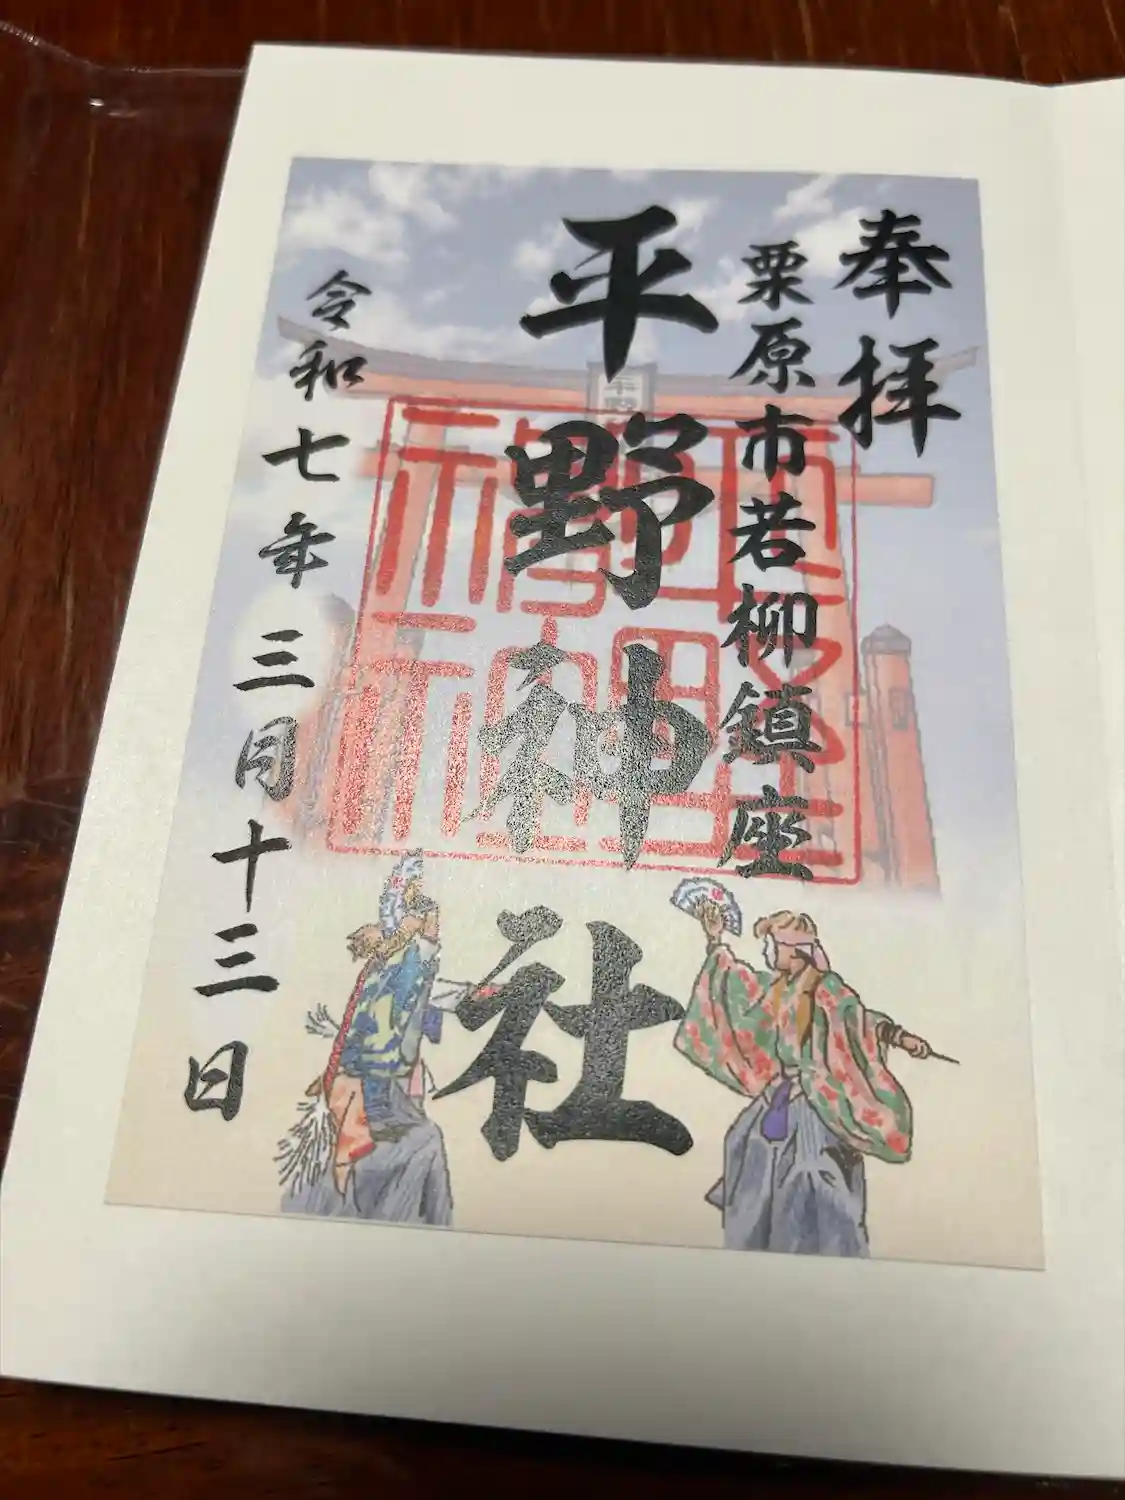 奉拝
栗原市若柳鎮座
平野神社
令和七年三月十三日